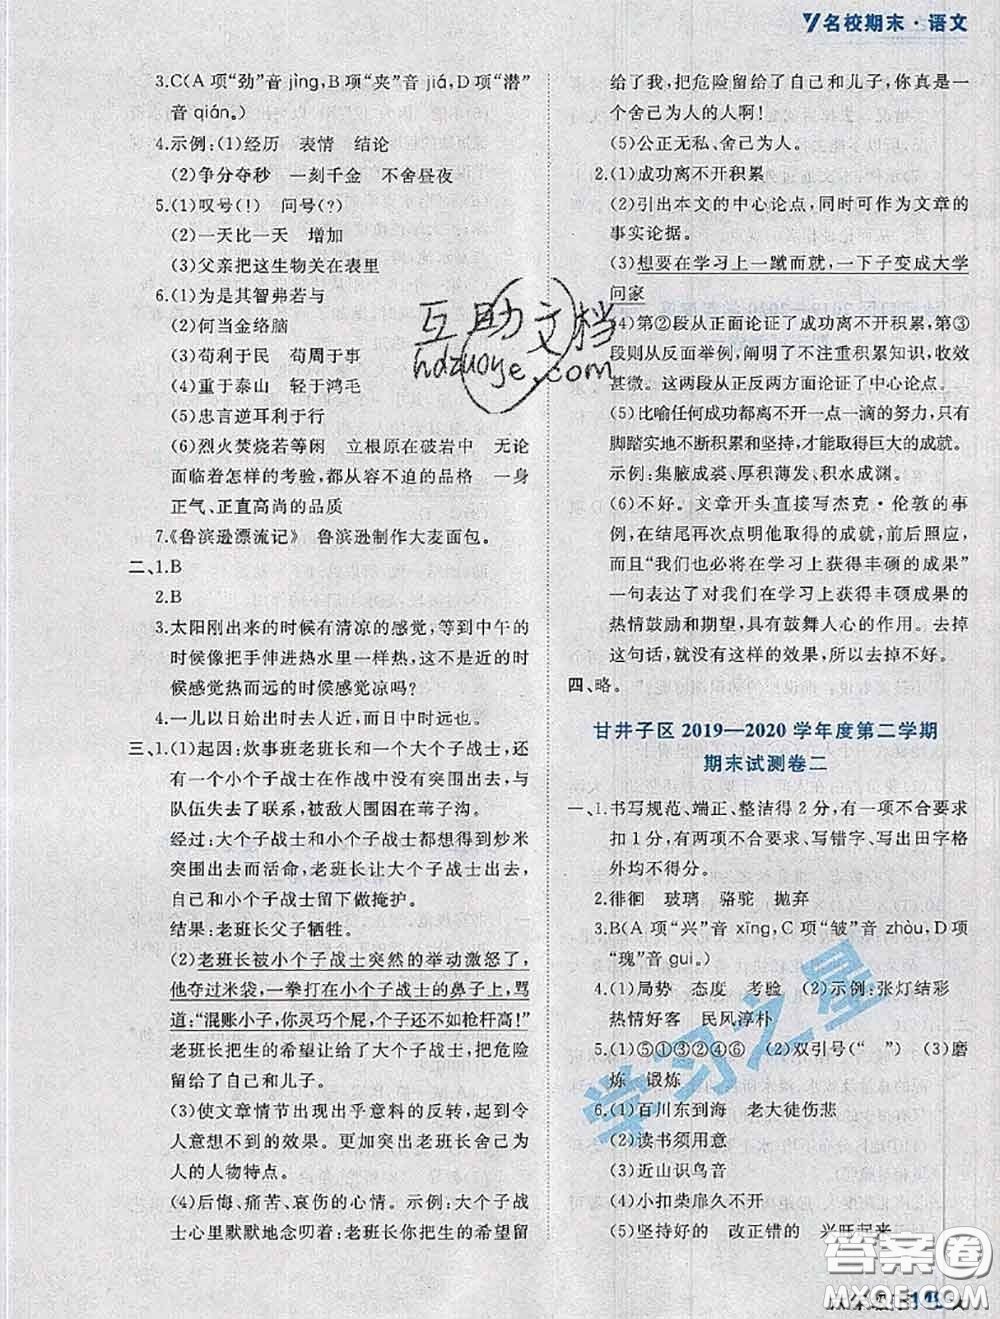 名校期末·语文
3.C(A 项“劲”音 jìng,B 项“夹”音 jiá,D 项“潜”
音 qián。)
4.示例:(1)经历 表情 结论
(2)争分夺秒 一刻千金 不舍昼夜
5.(1)叹号(!) 问号(?)
(2)一天比一天 增加
(3)父亲把这生物关在表里
6.(1)为是其智弗若与
(2)何当金络脑
(3)苟利于民 苟周于事
(4)重于泰山 轻于鸿毛
(5)忠言逆耳利于行
(6)烈火焚烧若等闲 立根原在破岩中 无论
面临着怎样的考验,都从容不迫的品格 一身
正气、正直高尚的品质
7.《鲁滨逊漂流记》 鲁滨逊制作大麦面包。
二、1.B
2.B
3.太阳刚出来的时候有清凉的感觉,等到中午的
时候像把手伸进热水里一样热,这不是近的时
候感觉热而远的时候感觉凉吗?
4.一儿以日始出时去人近,而日中时远也。
三、1.(1)起因:炊事班老班长和一个大个子战士,还
有一个小个子战士在作战中没有突围出去,与
队伍失去了联系,被敌人围困在苇子沟。
经过:大个子战士和小个子战士都想得到炒米
突围出去而活命,老班长让大个子战士突围,
自己和小个子战士留下做掩护。
结果:老班长父子牺牲。
(2)老班长被小个子战士突然的举动激怒了,
他夺过米袋,一拳打在小个子战士的鼻子上,骂
道:“混账小子,你灵巧个屁,个子还不如枪杆高!”
老班长把生的希望让给了大个子战士,把危险
留给了自己和儿子。
(3)使文章情节出现出乎意料的反转,起到令
人意想不到的效果。更加突出老班长舍己为
人的人物特点。
(4)后悔、痛苦、哀伤的心情。示例:大个子战
士心里默默地念叨着:老班长你把生的希望留
给了我,把危险留给了自己和儿子,你真是一
个舍己为人的人啊!
(5)公正无私、舍己为人。
2.(1)成功离不开积累
(2)引出本文的中心论点,同时可作为文章的
事实论据。
(3)想要在学习上一蹴而就,一下子变成大学
问家
(4)第②段从正面论证了成功离不开积累,第③
段则从反面举例,阐明了不注重积累知识,收效
甚微。这两段从正反两方面论证了中心论点。
(5)比喻任何成功都离不开一点一滴的努力,只有
脚踏实地不断积累和坚持,才能取得巨大的成就。
示例:集腋成裘、厚积薄发、积水成渊。
(6)不好。文章开头直接写杰克·伦敦的事
例,在结尾再次点明他取得的成就,前后照应,
而“我们也必将在学习上获得丰硕的成果”
一句表达了对我们在学习上获得丰硕成果的
热情鼓励和期望,具有鼓舞人心的作用。去掉
这句话,就没有这样的效果,所以去掉不好。
四、略。
甘井子区 2019—2020 学年度第二学期
期末试测卷二
一、1.书写规范、端正、整洁得 2 分,有一项不合要求
扣 1 分,有两项不合要求、写错字、写出田字格
外均不得分。
2.徘徊 玻璃 骆驼 抛弃
3.B(A 项“兴”音 xīng,C 项“皱”音 zhòu,D 项
“瑰”音 gui。)
4.(1)局势 态度 考验 (2)示例:张灯结彩
热情好客 民风淳朴
5.(1)⑤①③②④⑥ (2)双引号(“ ”) (3)磨
炼 锻炼
6.(1)百川东到海 老大徒伤悲
(2)读书须用意
(3)近山识鸟音
(4)小扣柴扉久不开
(5)坚持好的 改正错的 兴旺起来
互助文档
hdzuoye.com
学习之星
答案圈